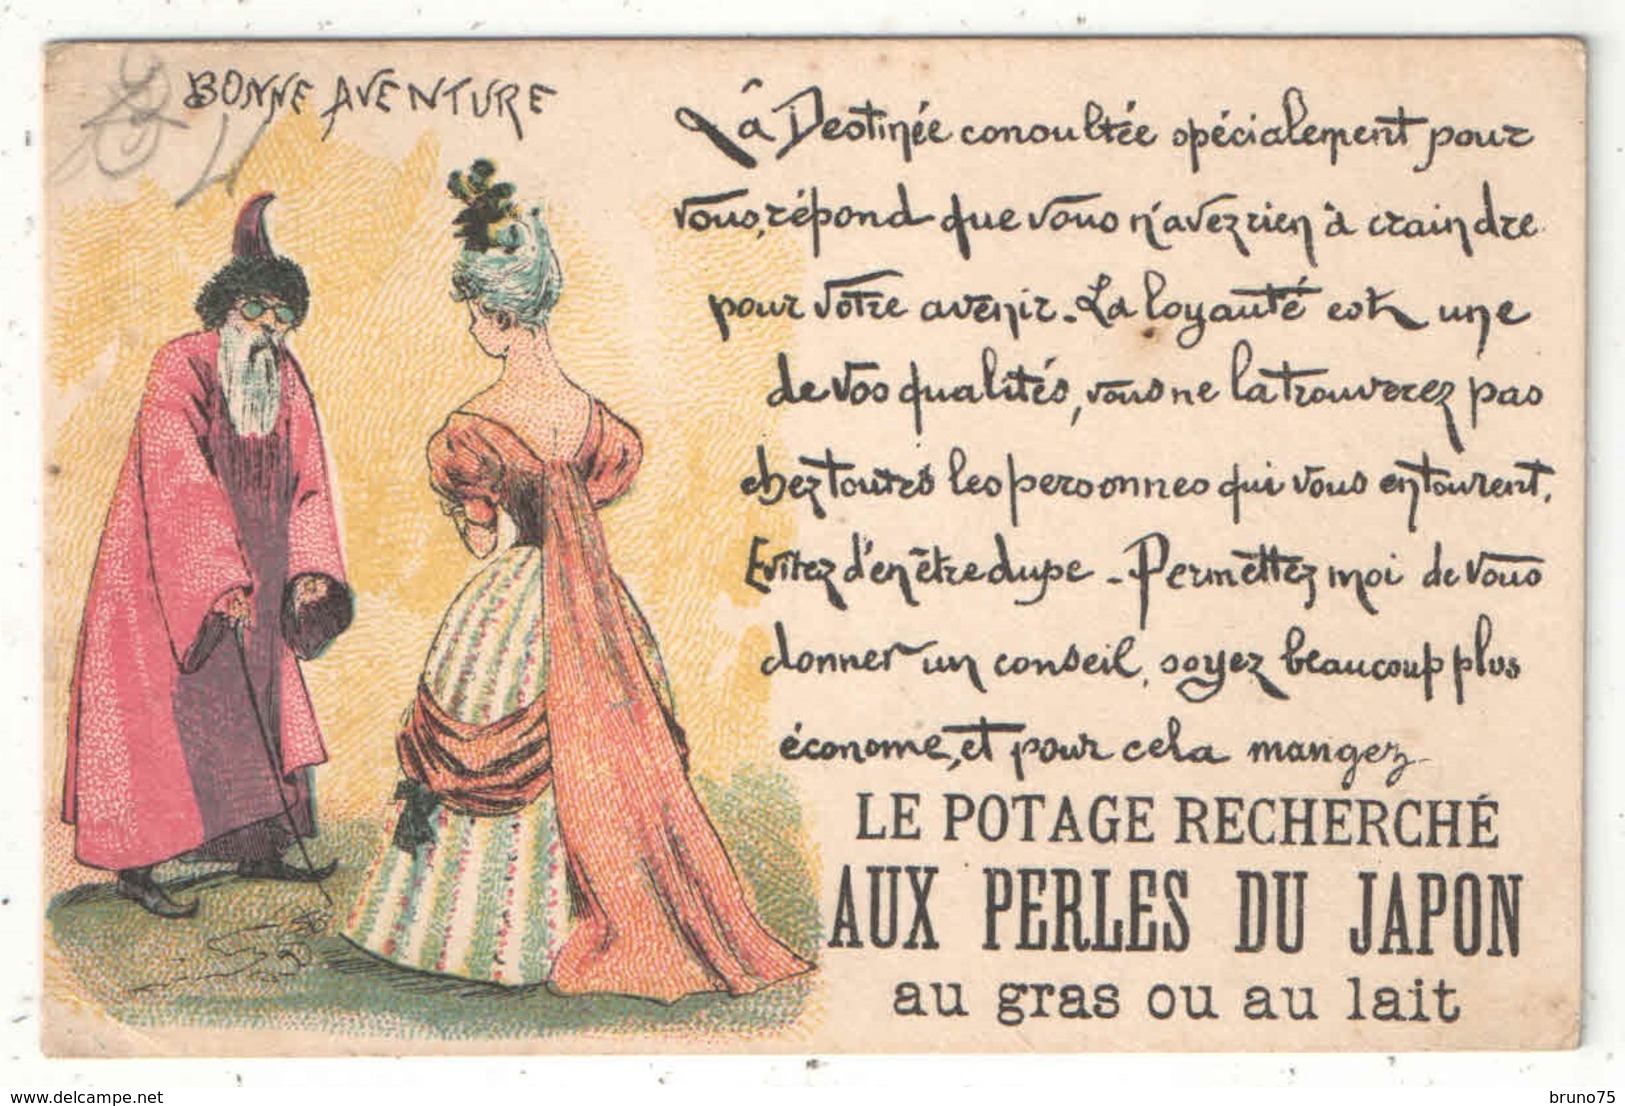 BONNE AVENTURE
La Destinée consultée spécialement pour
vous, répond que vous n'avez rien à craindre
pour votre avenir. La loyauté est une
de vos qualités, vous ne la trouverez pas
chez toutes les personnes qui vous entourent.
Evitez d'en être dupe - Permettez moi de vous
donner un conseil, soyez beaucoup plus
économe, et pour cela mangez
LE POTAGE RECHERCHÉ
AUX PERLES DU JAPON
au gras ou au lait
delcampe.net
bruno75